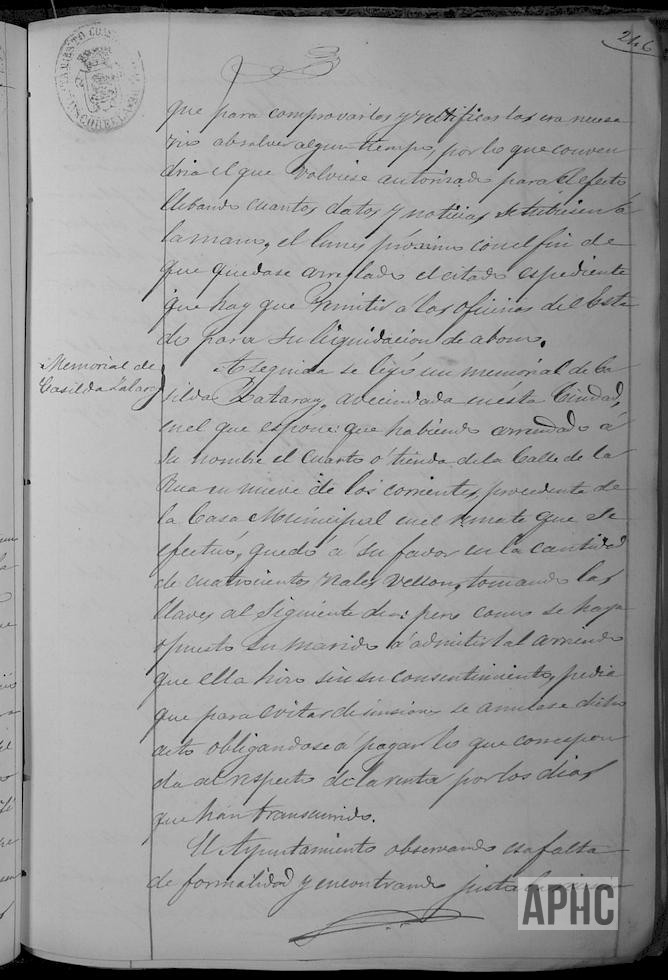 246
que para comprovarlos y rectificarlos era nesesa
rio absolver algun tiempo, por lo que conven
dria el que volviese autorizado para el efecto
llebando cuantos datos y noticias se tubiesen á
la mano, el lunes próximo con el fin de
que quedase arreglado el citado espediente
que hay que remitir á las oficinas del Esta
do para su liquidacion de abono.
Memorial de
Casilda Zalaray
A seguida se leyó un memorial de Ca
silda Zataray, avecindada en ésta Ciudad,
en el que espone: que habiendo arrendado á
su nombre el cuarto ó tienda de la Calle de la
Rua en nueve de los corrientes, procedente de
la Casa Municipal en el remate que se
efectuó, quedó á su favor en la cantidad
de cuatrocientos reales vellon, tomando las
llaves al siguiente dia: pero como se haya
opuesto su marido á admitir tal arriendo
que ella hizo sin su consentimiento, pedia
que para evitar disensiones se anulase dicho
acto obligandose á pagar lo que correspon
da al respecto de la renta por los dias
que han transcurrido.
El Ayuntamiento observando esa falta
de formalidad y encontrando justa
APHC